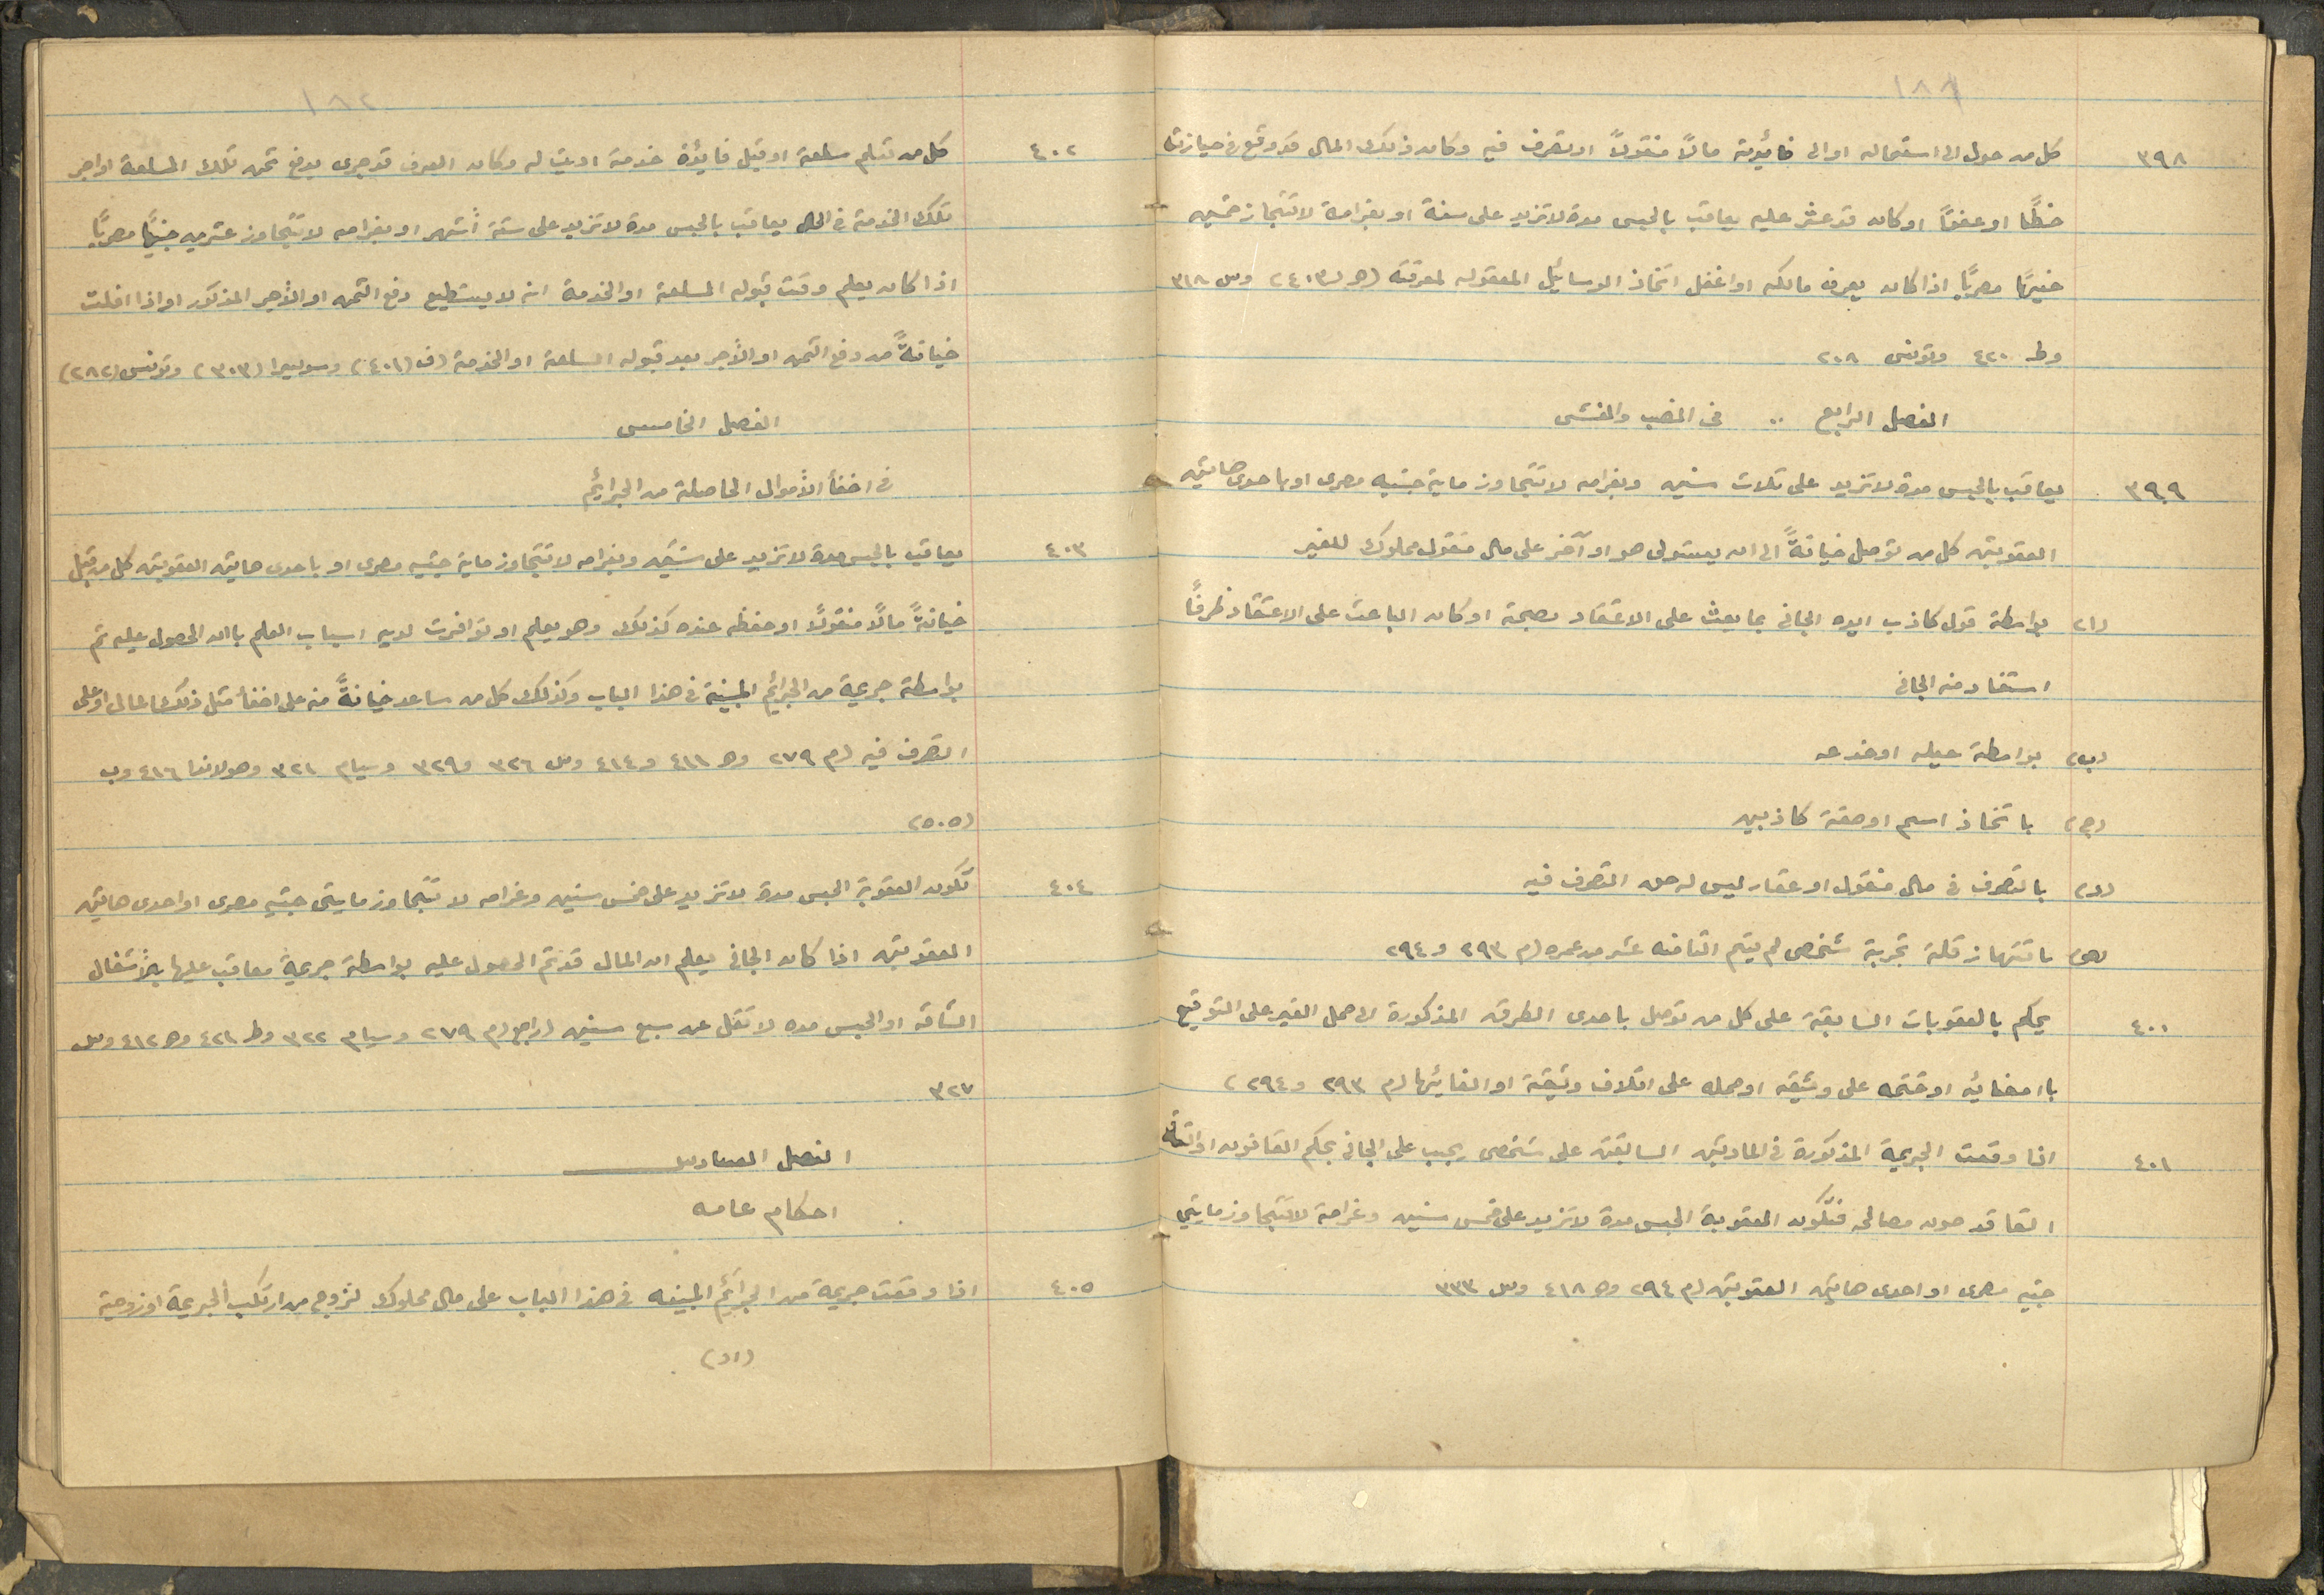 ١٨١
٣٩٨ كل من حول الى استعماله او الى فائدته مالاً منقولاً او تصرف فيه وكان ذلك المال قد وقع في حيازته
خطأً او عفواً او كان قد عثر عليه يعاقب بالحبس مدة لا تزيد على سنة او بغرامة لا تتجاز خمسين
جنيهًا مصريًا اذا كان يعرف مالكه او اغفل اتخاذ الوسائل المعقوله لمعرفته (ھ ل ٤٠٣) وس ٣١٨
وط ٤٢٠ وتونس ٢٠٨
الفصل الرابع .. فى النصب والغش
٣٩٩ يعاقب بالحبس مدة لا تزيد على ثلاث سنين وبغرامه لا تتجاوز ماية جنيه مصرى او باحدى هاتين
العقوبتين كل من توصل خيانةً الى ان يستولى هو او آخر على مال منقول مملوك للغير
(ا) بواسطة قول كاذب ايده الجانى بما يبعث على الاعتقاد بصحته او كان الباعث على الاعتقاد ظرفًا
استفاد منه الجانى
(ب) بواسطة حيله او خدعه
(ج) باتخاذ اسم او صفة كاذبين
(د) بالتصرف فى مال منقول او عقار ليس له حق التصرف فيه
(ھ) بانتهاز قلة تجربة شخص لم يتم الثامنه عشر من عمره (م ٢٩٣ و ٢٩٤
٤٠٠ يحكم بالعقوبات السابقة على كل من توصل باحدى الطرق المذكورة الى حمل الغير على التوقيع
باامضائه او ختمه على وثيقه او حمله على اتلاف وثيقة او الغائها (م ٢٩٣ و ٢٩٤)
٤٠١ اذا وقعت الجريمة المذكورة فى المادتين السابقتين على شخص يجب على الجانى بحكم القانون او اتفاق
التعاقد صون مصالحه فتكون العقوبة الحبس مدة لا تزيد على خمس سنين وغرامة لا تتجاوز مايتي
جنيه مصرى او احدى هاتين العقوبتين (م ٢٩٤ وھ ٤١٨ وس ٣٣٣
١٨٢
٤٠٢ كل من تسلم سلعة او قبل فايدة خدمة اديت له وكان العرف قد جرى بدفع ثمن تلك السلعة او اجر
تلك الخدمة فى الحال يعاقب بالحبس مدة لا تزيد على ستة أشهر او بغرامه لا تتجاوز عشرين جنيهًا مصريًا
اذا كان يعلم وقت قبوله السلعة او الخدمة انه لا يستطيع دفع الثمن او الأجر المذكور او اذا افلت
خيانةً من دفع الثمن او الأجر بعد قبوله السلعة او الخدمة (ف (٤٠١) وسويسرا (٣٠٣) وتونس (٢٨٢)
الفصل الخامس
فى اخفأ الأموال الحاصلة من الجرائم
٤٠٣ يعاقب بالحبس مدة لا تزيد على سنتين وبغرامه لا تتجاوز ماية جنيه مصرى او باحدى هاتين العقوبتين كل من قبل
خيانةً مالاً منقولاً او حفظه عنده كذلك وهو يعلم او توافرت لديه اسباب العلم باان الحصول عليه تم
بواسطة جريمة من الجرائم المبينة فى هذا الباب وكذلك كل من ساعد خيانةً منه على اخفأ مثل ذلك المال او على
التصرف فيه (م ٢٧٩ وھ ٤١١ و ٤١٤ وس ٣٢٦ و ٣٢٩ وسيام ٣٢١ وهولاندا ٤١٦ وب
(٥٠٥)
٤٠٤ تكون العقوبة الحبس مدة لا تزيد على خمس سنين وغرامه لا تتجاوز مايتى جنيه مصرى او احدى هاتين
العقوبتين اذا كان الجانى يعلم ان المال قد تم الحصول عليه بواسطة جريمة معاقب عليها بالأشغال
الشاقة او الحبس مده لا تقل عن سبع سنين (راجع (م ٢٧٩ وسيام ٣٢٢ وط ٤٢١ وھ ٤١٢ وس
٣٢٧
الفصل السادس
احكام عامه
٤٠٥ اذا وقعت جريمة من الجرائم المبينه فى هذا الباب على مال مملوك لزوج من ارتكب الجريمة او زوجته
(او)